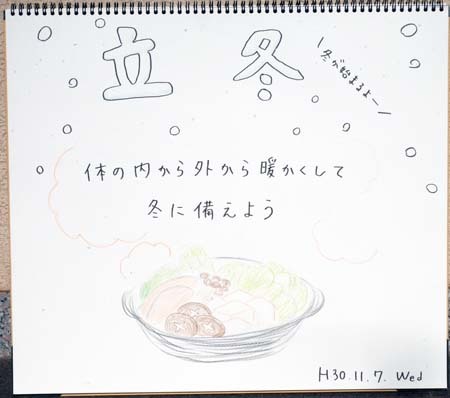 立冬
\冬が始まるよー/
体の内から外から暖かくして
冬に備えよう
H30.11.7. Wed